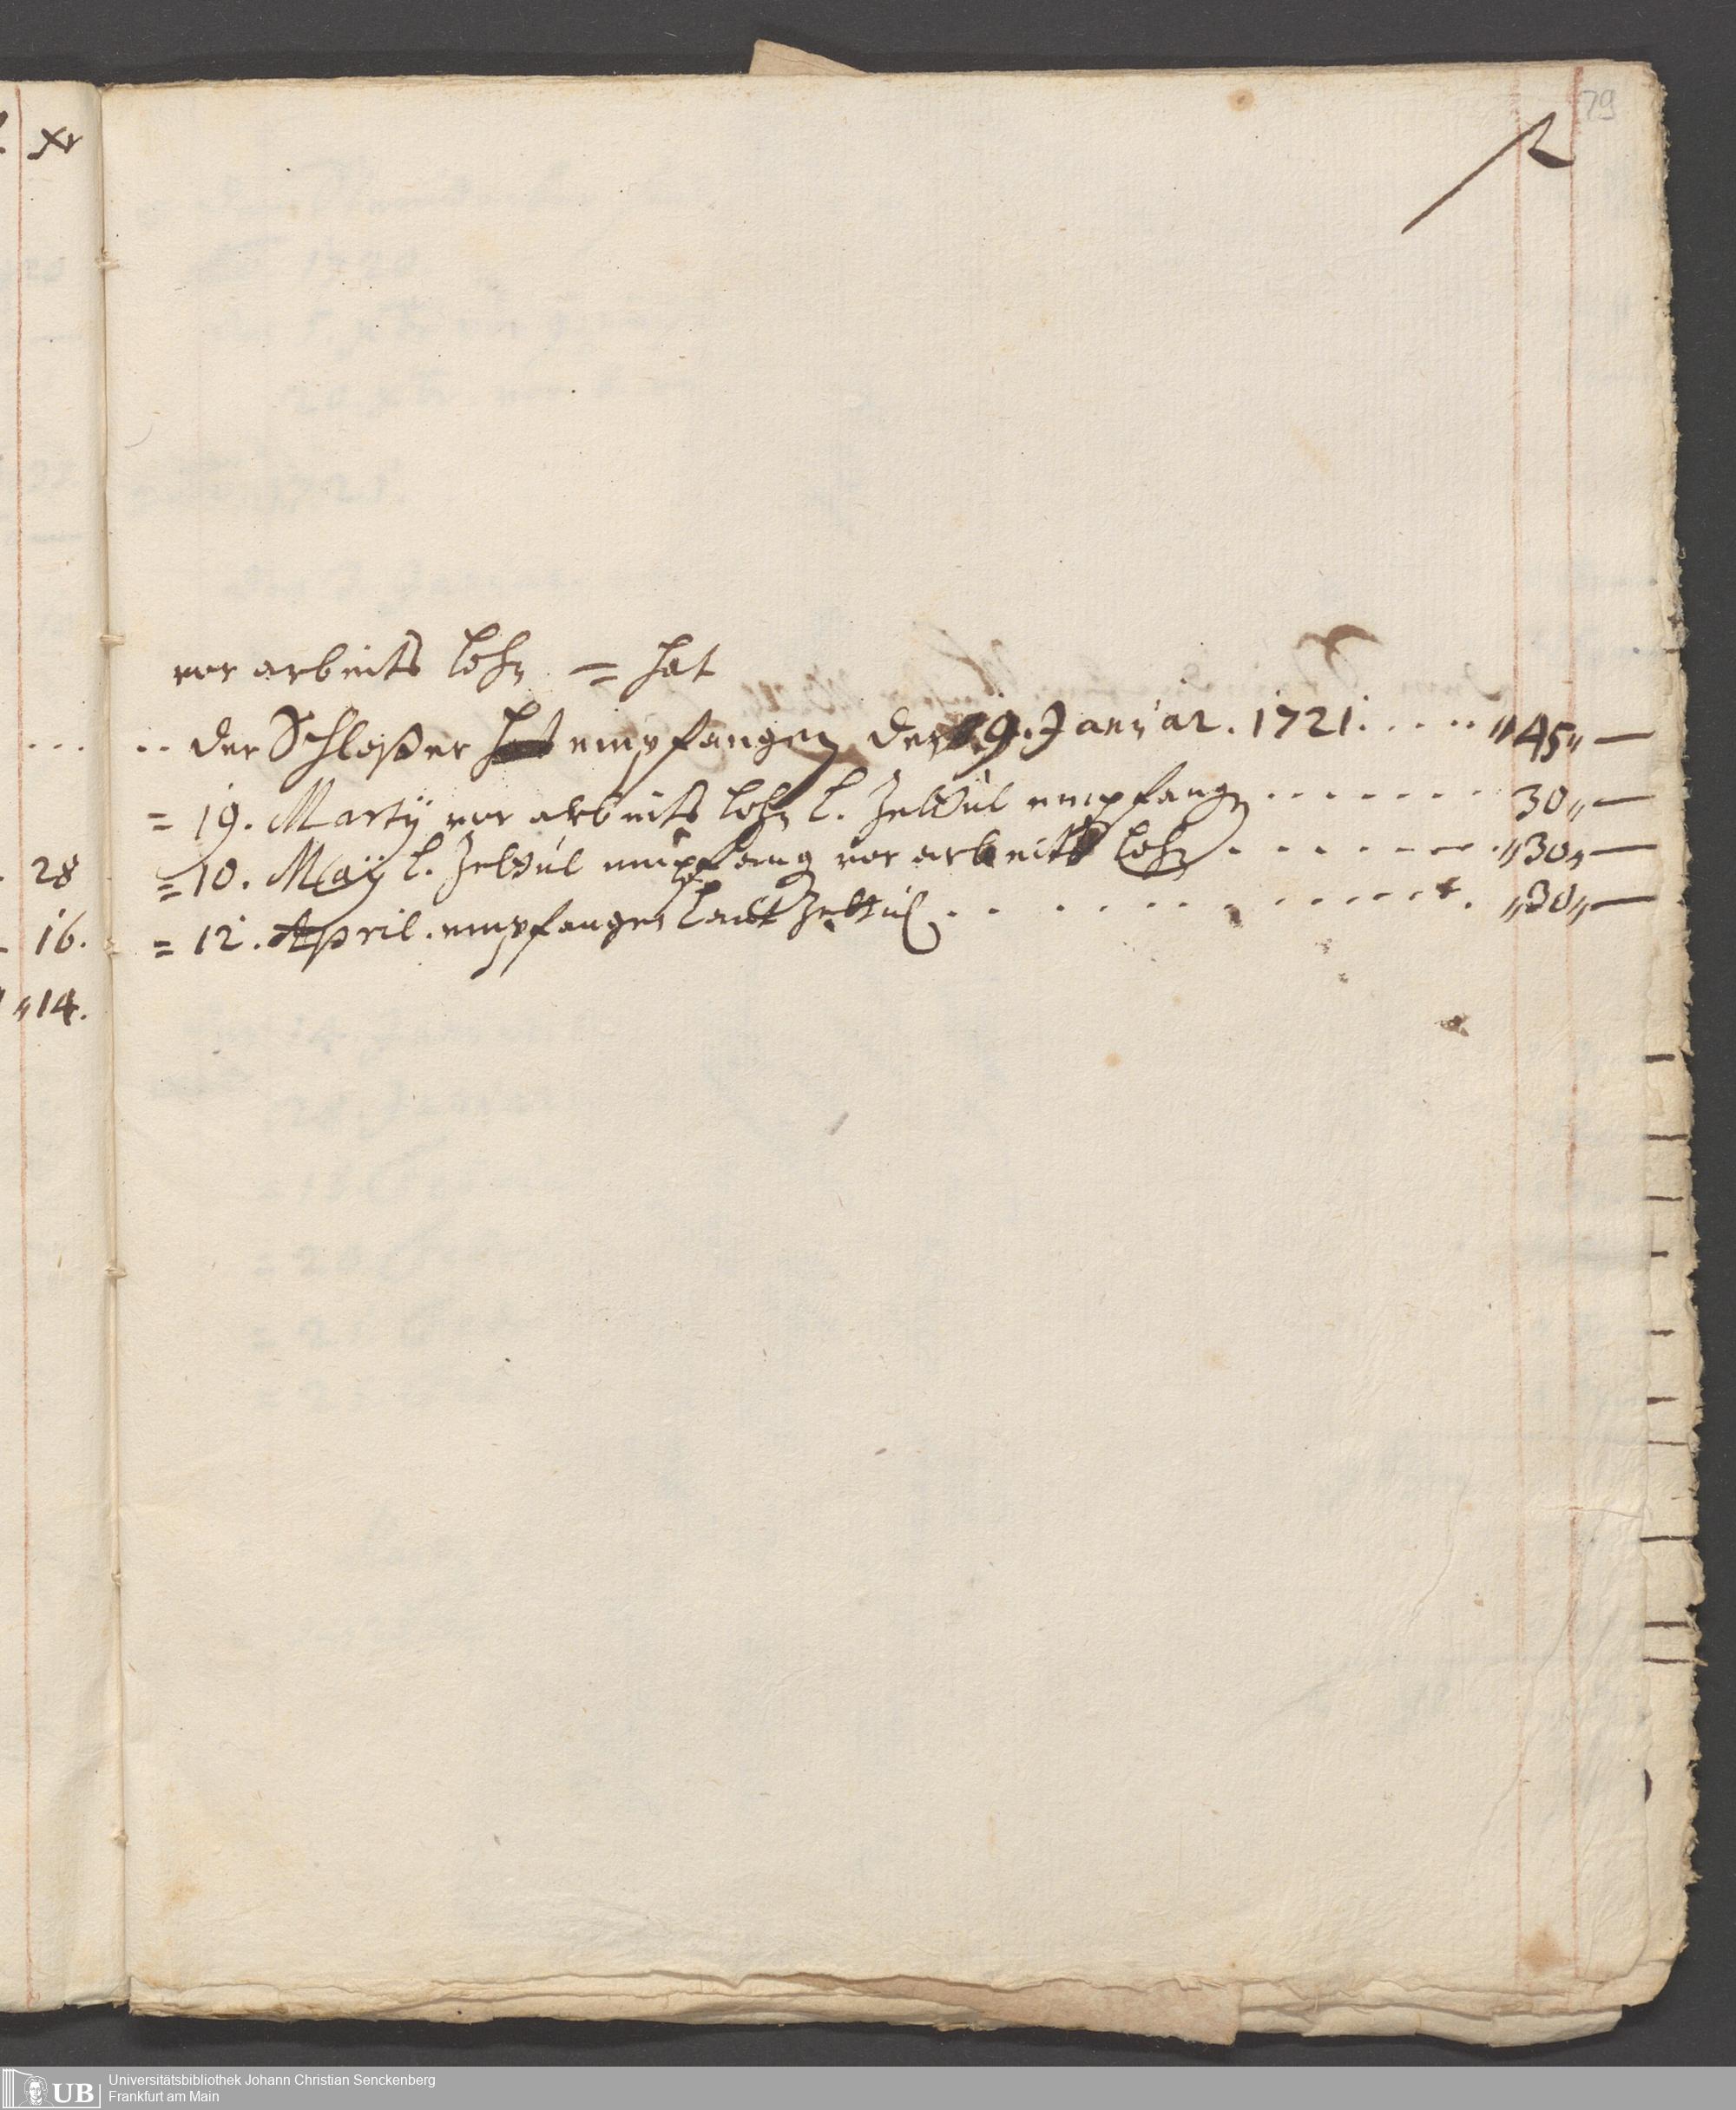 79
xr
vor arbeits Lohn = hat
der Schloßer hat empfangen den 19. Januar. 1721. .... "45" —
= 19. Martÿ vor arbeits Lohn l. Zettul empfangn ....... 30" —
28 = 10. Maÿ l. Zettul empfang vor arbeits Lohn ....... "30" —
16. = 12. April. empfangen laut Zettul ............ "30" —
"14.
UB Universitätsbibliothek Johann Christian Senckenberg
Frankfurt am Main